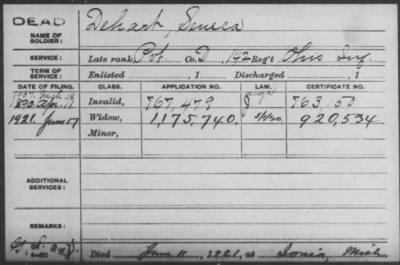 DEAD
NAME OF SOLDIER: Dehart, Seneca
SERVICE: Late rank, Pvt. Co. D, 142 Reg't Ohio Inf.
TERM OF SERVICE: Enlisted , 1 Discharged , 1
DATE OF FILING. CLASS. APPLICATION NO. LAW. CERTIFICATE NO.
Invalid, 767,479
1921. June 17 Widow, 1,175,740. 920,534
Minor,
ADDITIONAL SERVICES:
REMARKS:
Died June 11, 1921, at Ionia, Mich